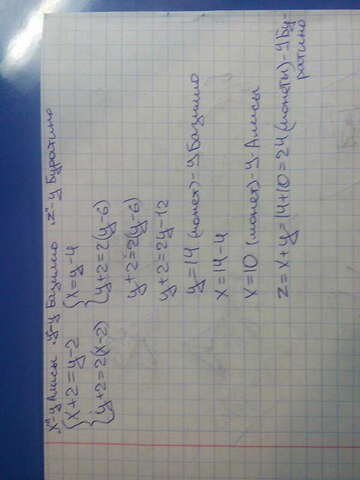 „x“-у Алисы „y“-у Базилио „z“-у Буратино
{x+2=y-2 {x=y-4
{y+2=2(x-2) {y+2=2(y-6)
y+2=2(y-6)
y+2=2y-12
y=14 (монет)-у Базилио
x=14-4
x=10 (монет)-у Алисы
z=x+y=14+10=24 (монеты)-у Бу-
ратино